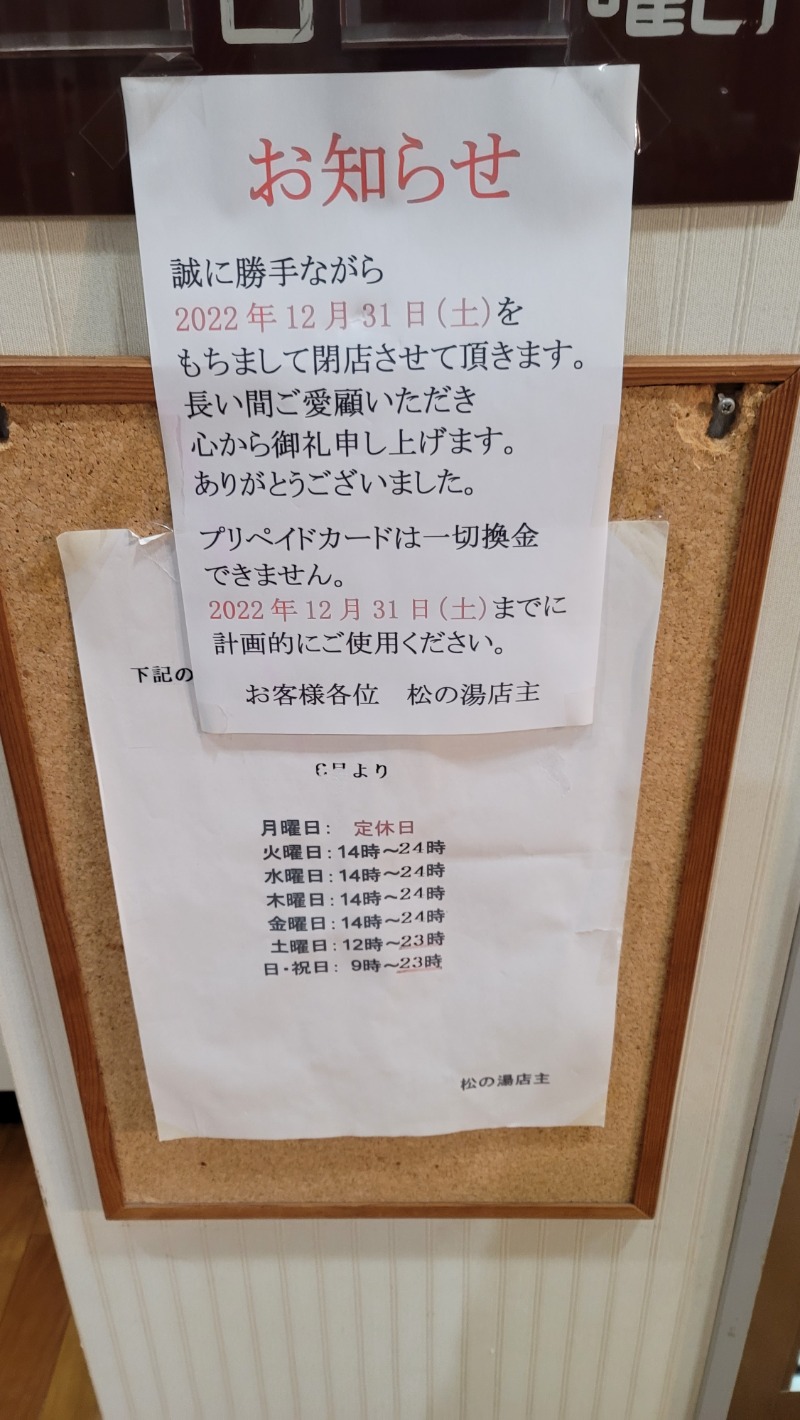 日 曜日
お知らせ
誠に勝手ながら
2022年12月31日(土)を
もちまして閉店させて頂きます。
長い間ご愛顧いただき
心から御礼申し上げます。
ありがとうございました。
プリペイドカードは一切換金
できません。
2022年12月31日(土)までに
計画的にご使用ください。
お客様各位 松の湯店主
下記の
より
月曜日: 定休日
火曜日:14時~24時
水曜日:14時~24時
木曜日:14時~24時
金曜日:14時~24時
土曜日:12時~23時
日・祝日: 9時~23時
松の湯店主